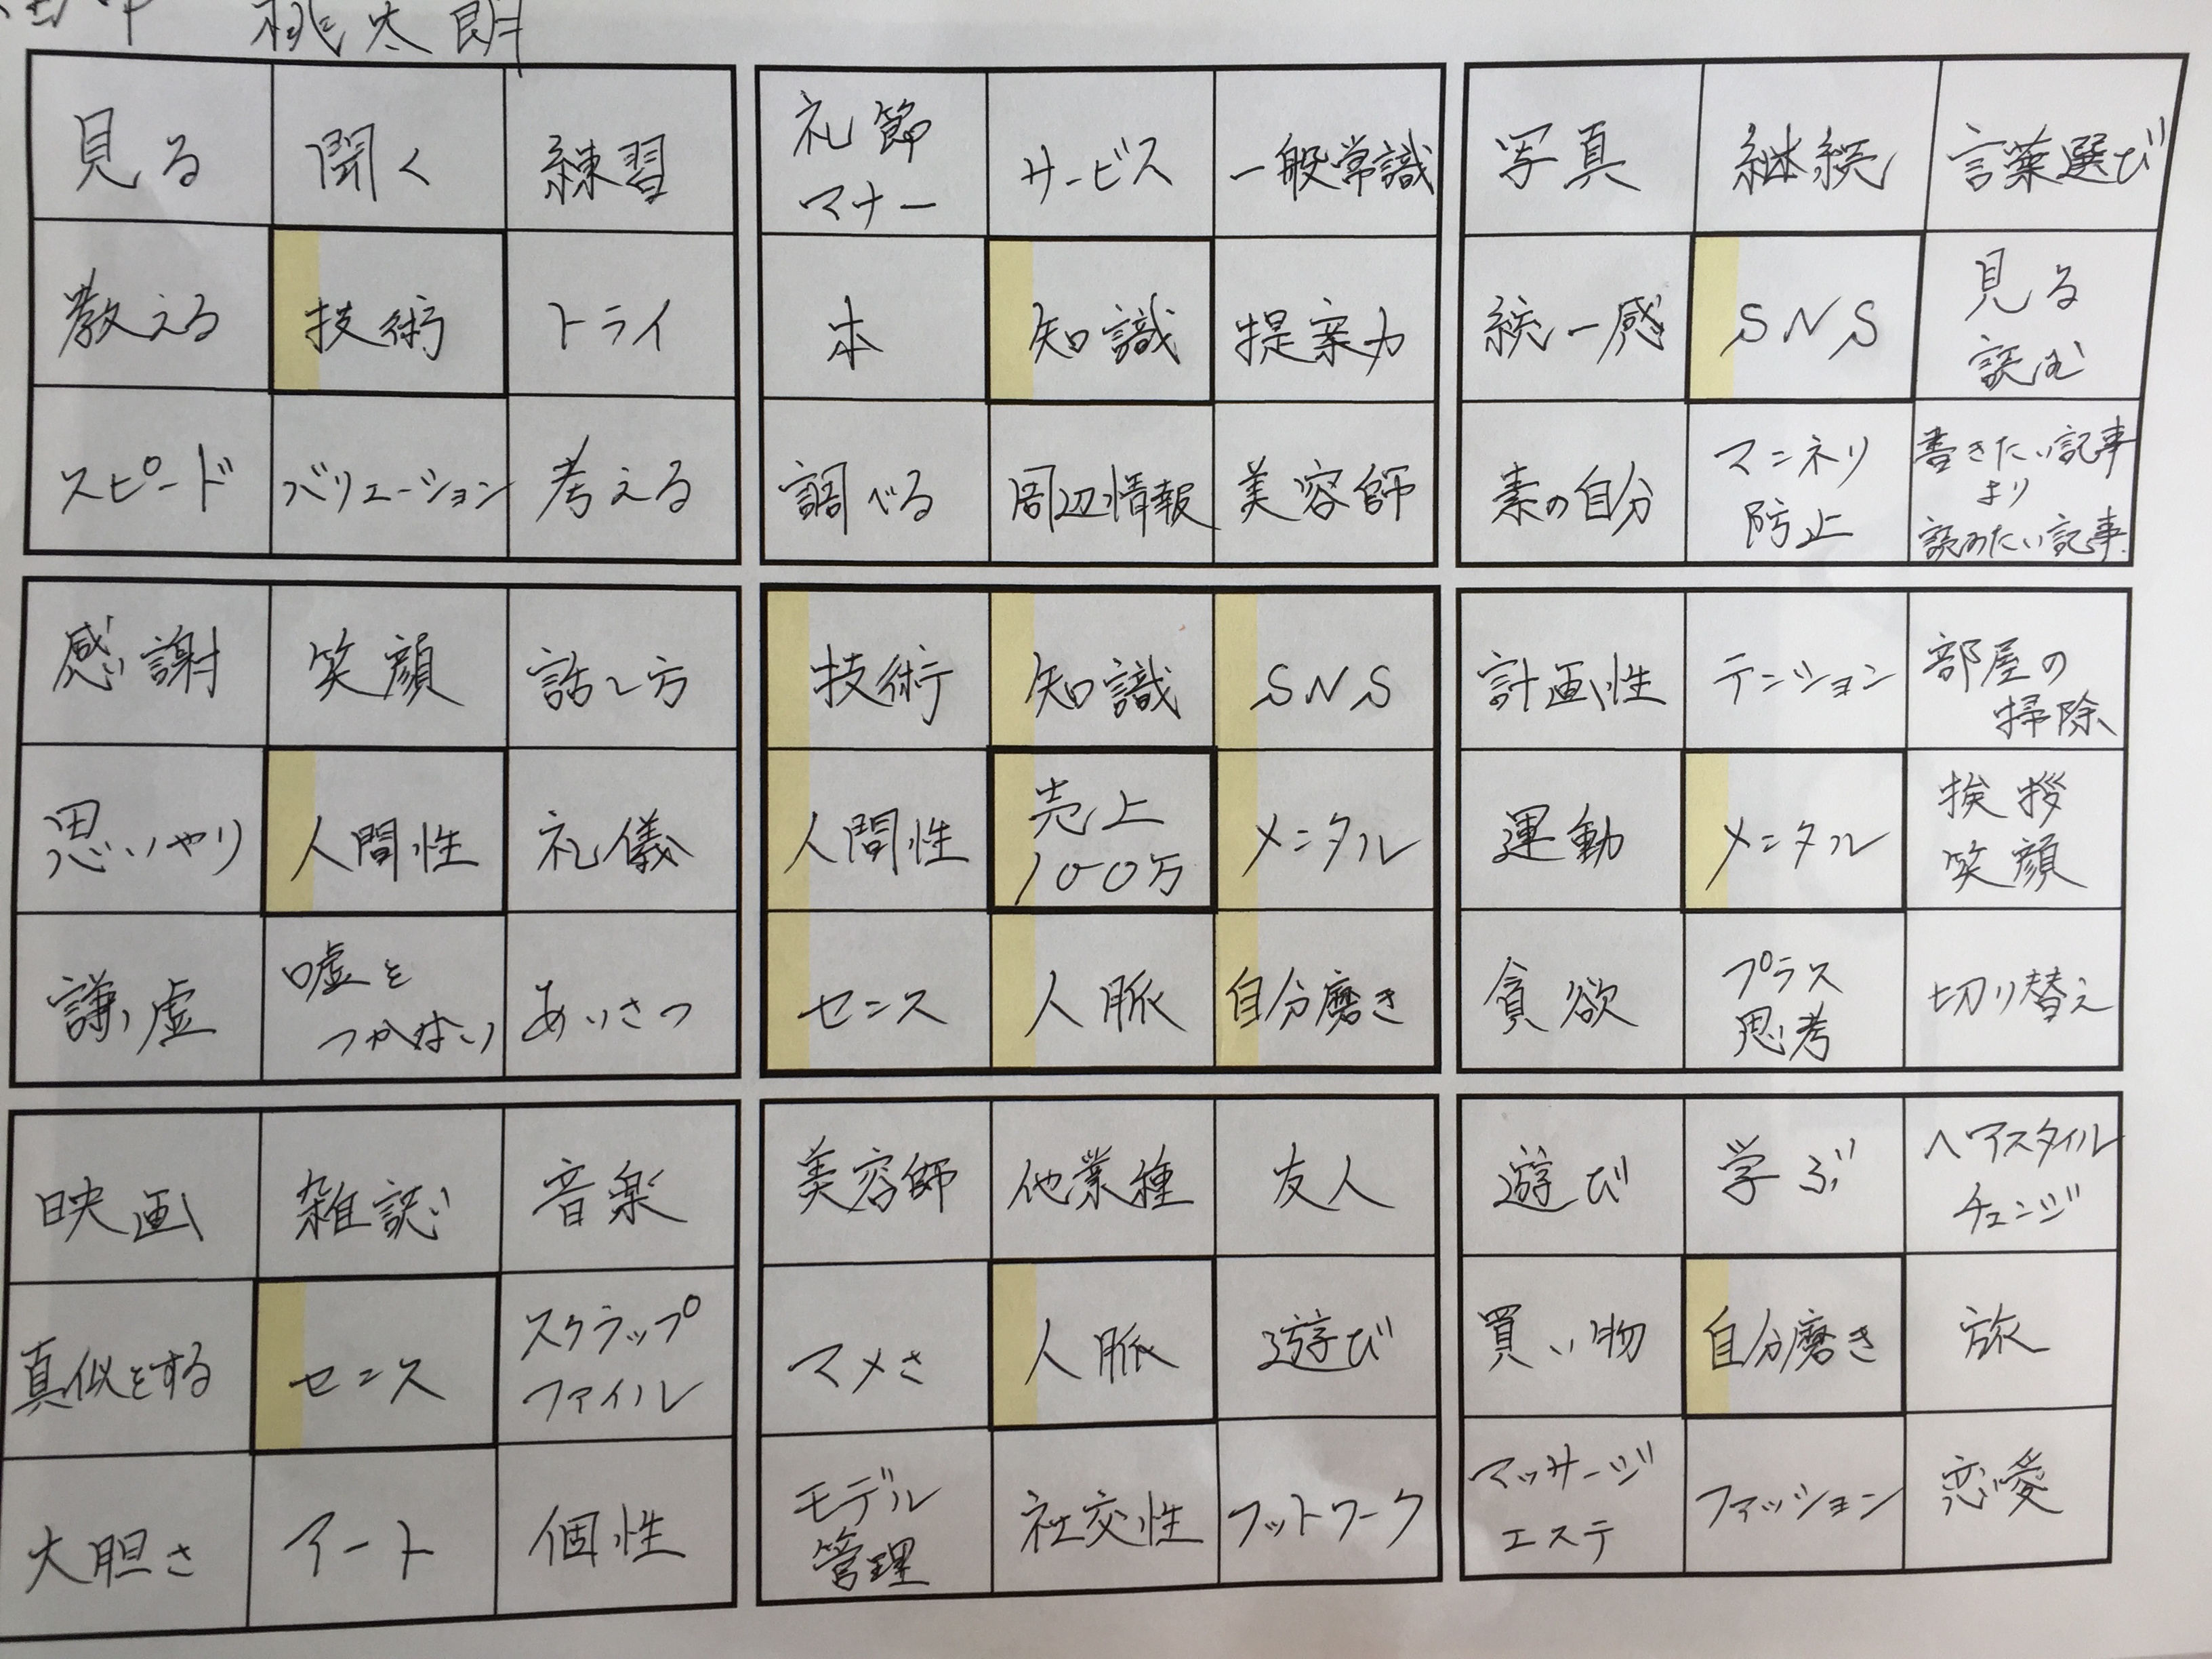 桃太朗
見る 聞く 練習
教える 技術 トライ
スピード バリエーション 考える
礼節 マナー サービス 一般常識
本 知識 提案力
調べる 周辺情報 美容師
写真 継続 言葉選び
統一感 SNS 見る 読む
素の自分 マンネリ 防止 書きたい記事 より 読みたい記事
感謝 笑顔 話し方
思いやり 人間性 礼儀
謙虚 嘘を つかない あいさつ
技術 知識 SNS
人間性 売上 100万 メンタル
センス 人脈 自分磨き
計画性 テンション 部屋の 掃除
運動 メンタル 挨拶 笑顔
貪欲 プラス 思考 切り替え
映画 雑誌 音楽
真似をする センス スクラップ ファイル
大胆さ アート 個性
美容師 他業種 友人
マメさ 人脈 遊び
モデル 管理 社交性 フットワーク
遊び 学ぶ ヘアスタイル チェンジ
買い物 自分磨き 旅
マッサージ エステ ファッション 恋愛